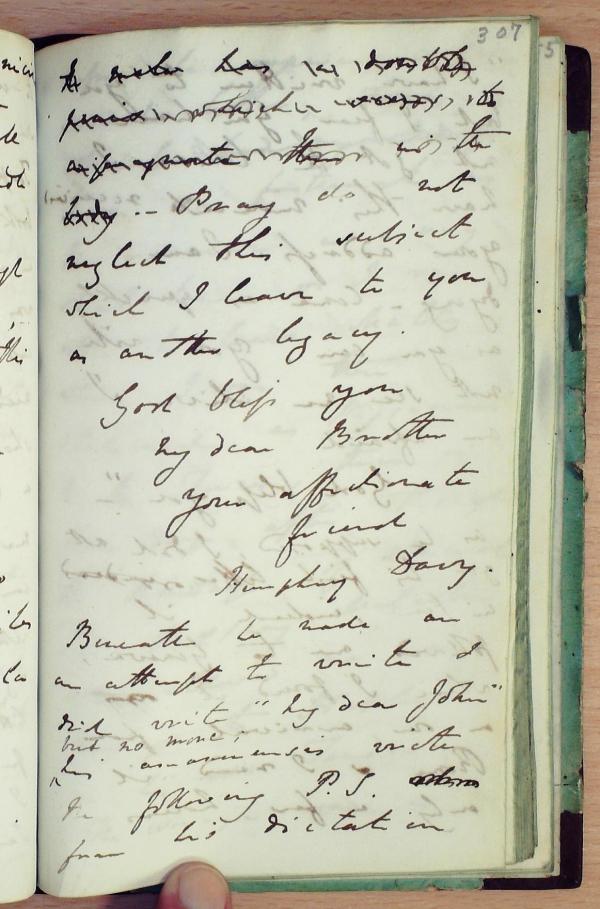 307
has doubly
which
in the
body -- Pray do not
neglect this subject
which I leave to you
as another legacy.
God bless you
My dear Brother
your affectionate
friend
Humphry Davy.
Beneath he made an
an attempt to write &
did write "My dear John"
but no more;
his amanuensis write
the following P.S.
from his dictation